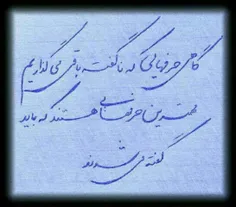 گاهی حرفهایی که ناگفته باقی می گذاریم
بهترین حرفهایی هستند که باید
گفته می شدند